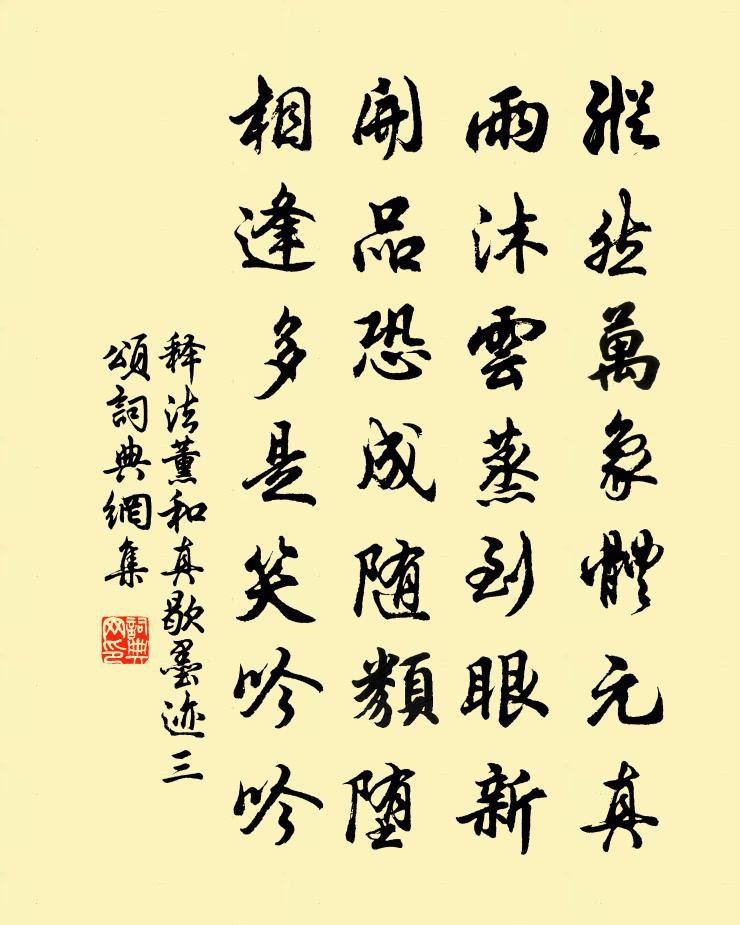 縱然萬象體元真
雨沐雲蒸到眼新
開品恐成随類堕
相逢多是笑吟吟
释法薰和真歇墨迹三
頌詞典網集
詞典
网印